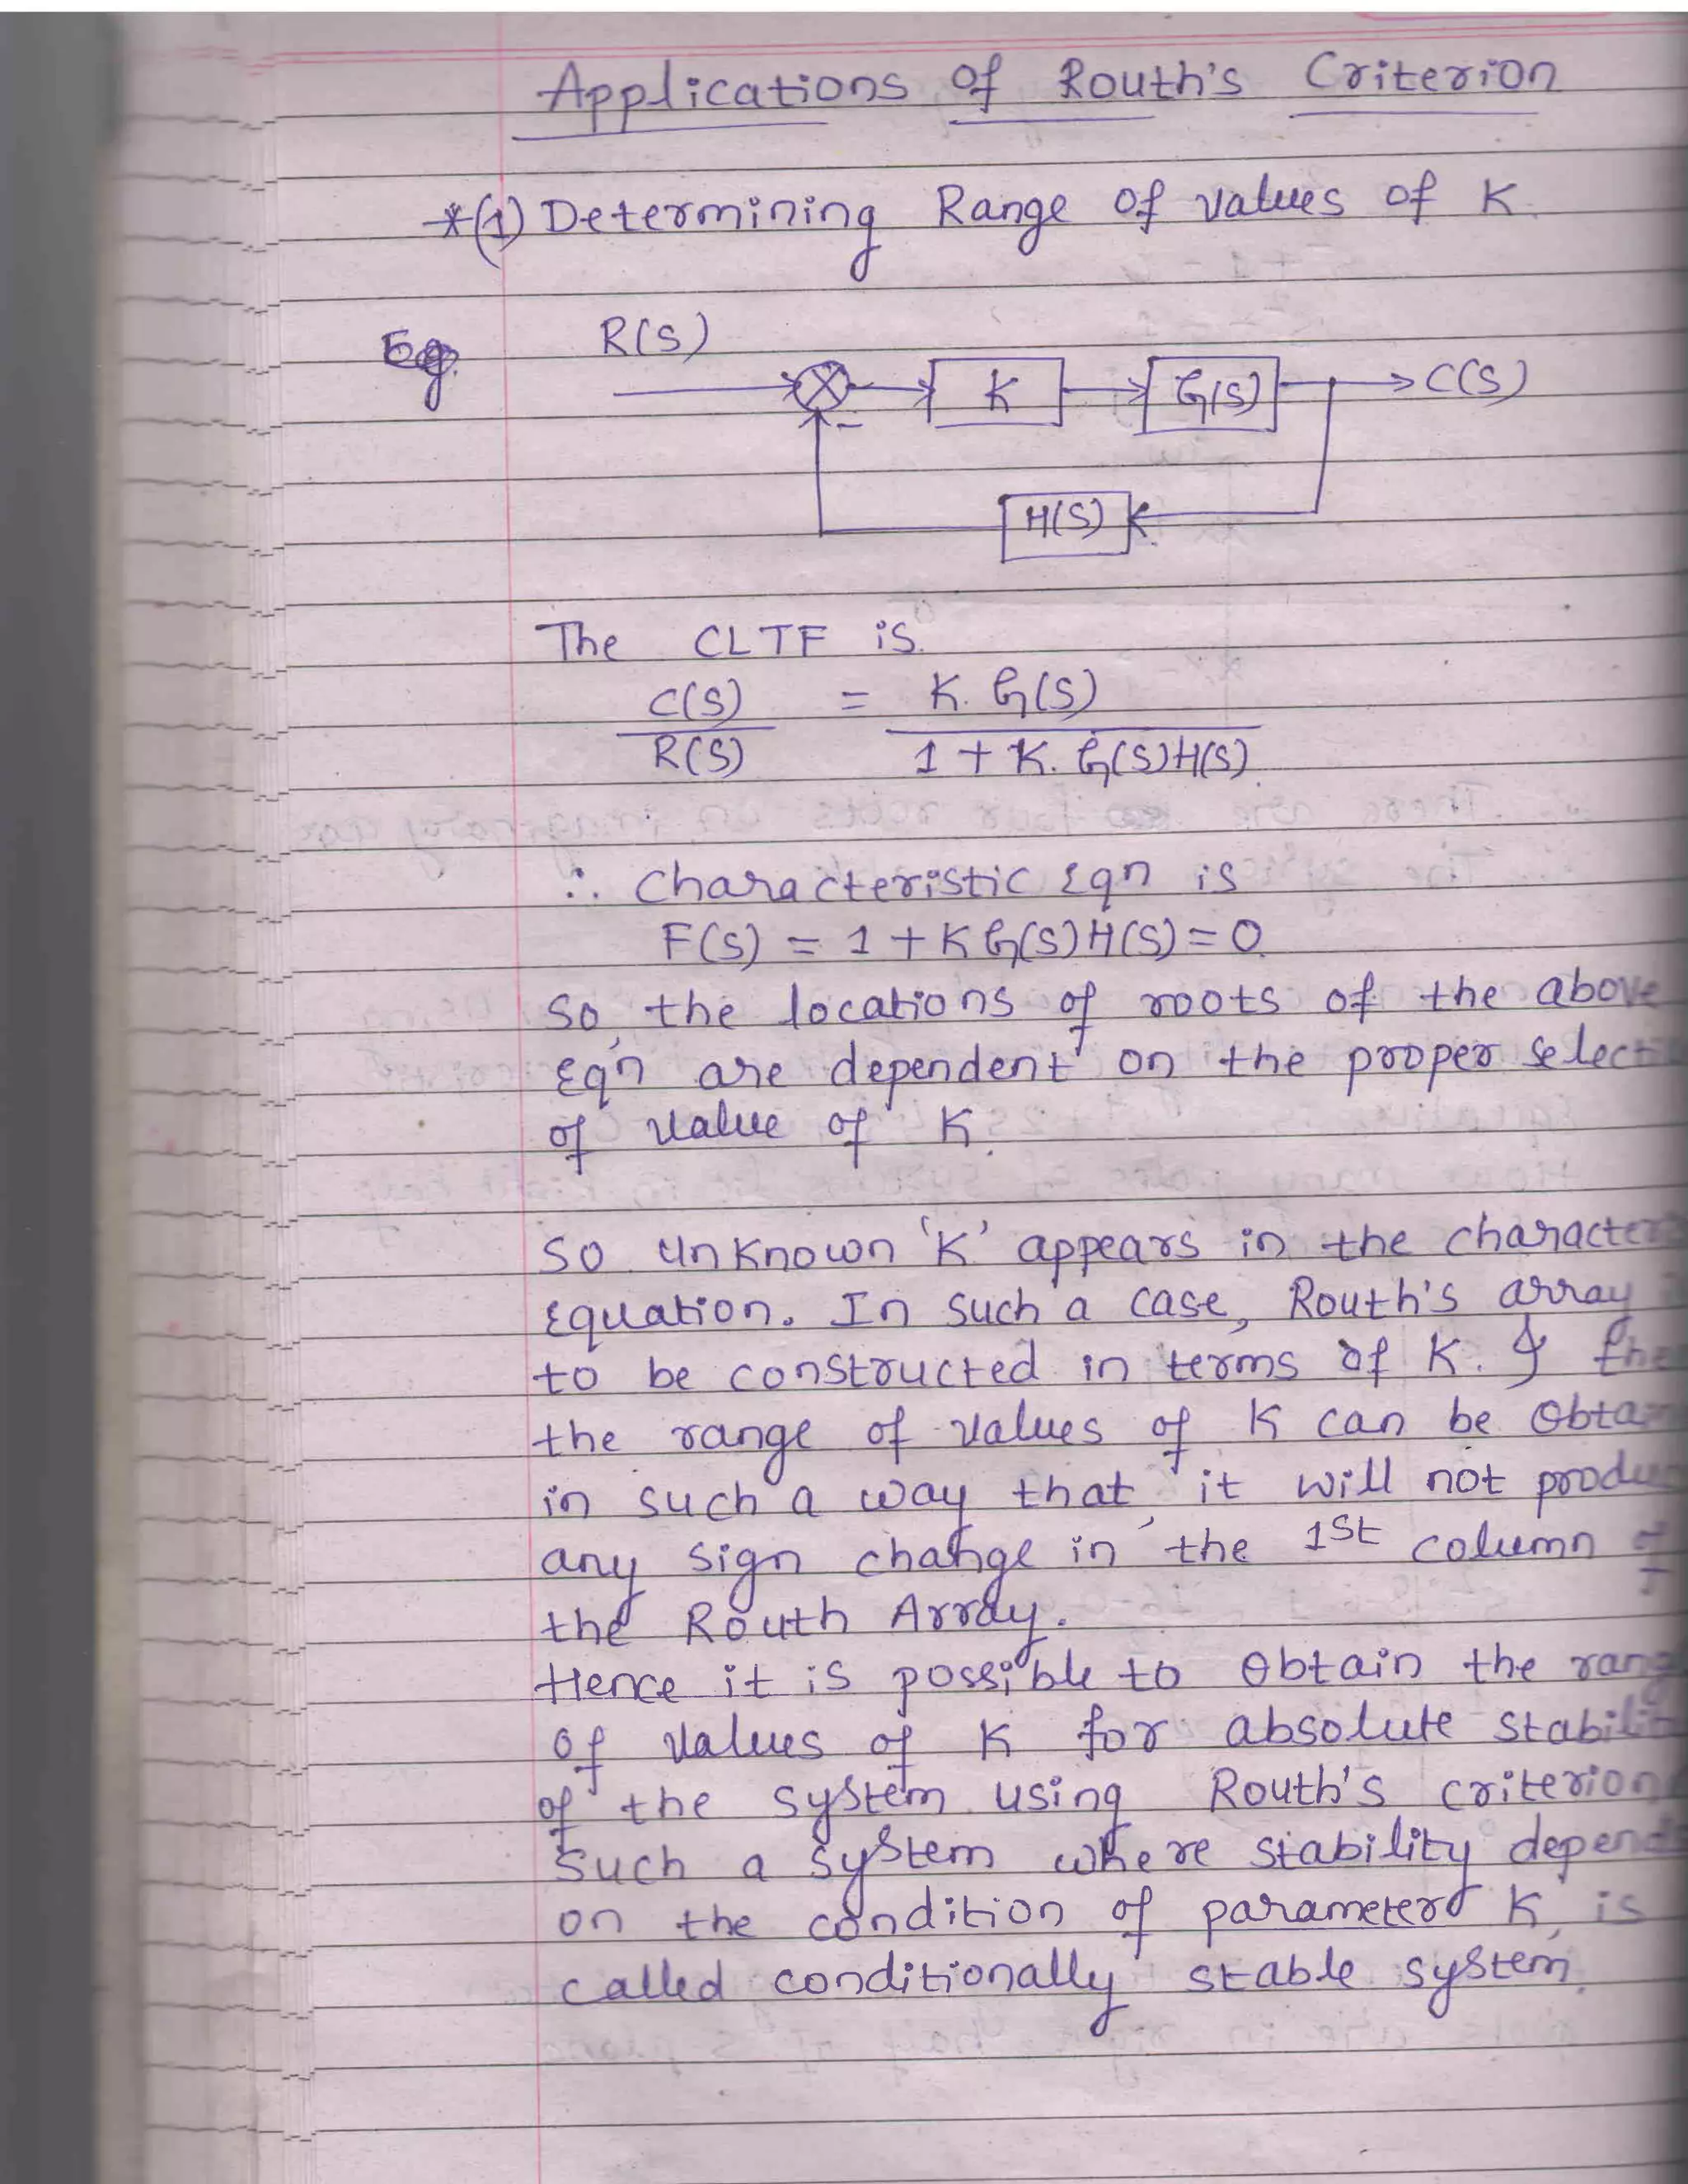 Applications of Routh's Criterion
*(1) Determining Range of values of K.
Eg.
R(S)
K
G(S)
C(S)
-
H(S)
The CLTF is.
C(S) = K. G(S)
R(S) 1 + K. G(S)H(S).
∴ characteristic Eqn is
F(S) = 1 + K G(S)H(S) = 0.
So, the locations of roots of the above
Eqn are dependent on the proper select
of value of K.
So unknown 'K' appears in the character
Equation. In such a case, Routh's array
to be constructed in terms of K. &
the range of values of K can be Obtain
in such a way that it will not produc
any sign change in the 1st column of
the Routh Array.
Hence it is possible to Obtain the rang
of values of K for absolute stabili
of the system using Routh's criterion
Such a system where stability depends
on the condition of parameter K, is
called conditionally stable system.